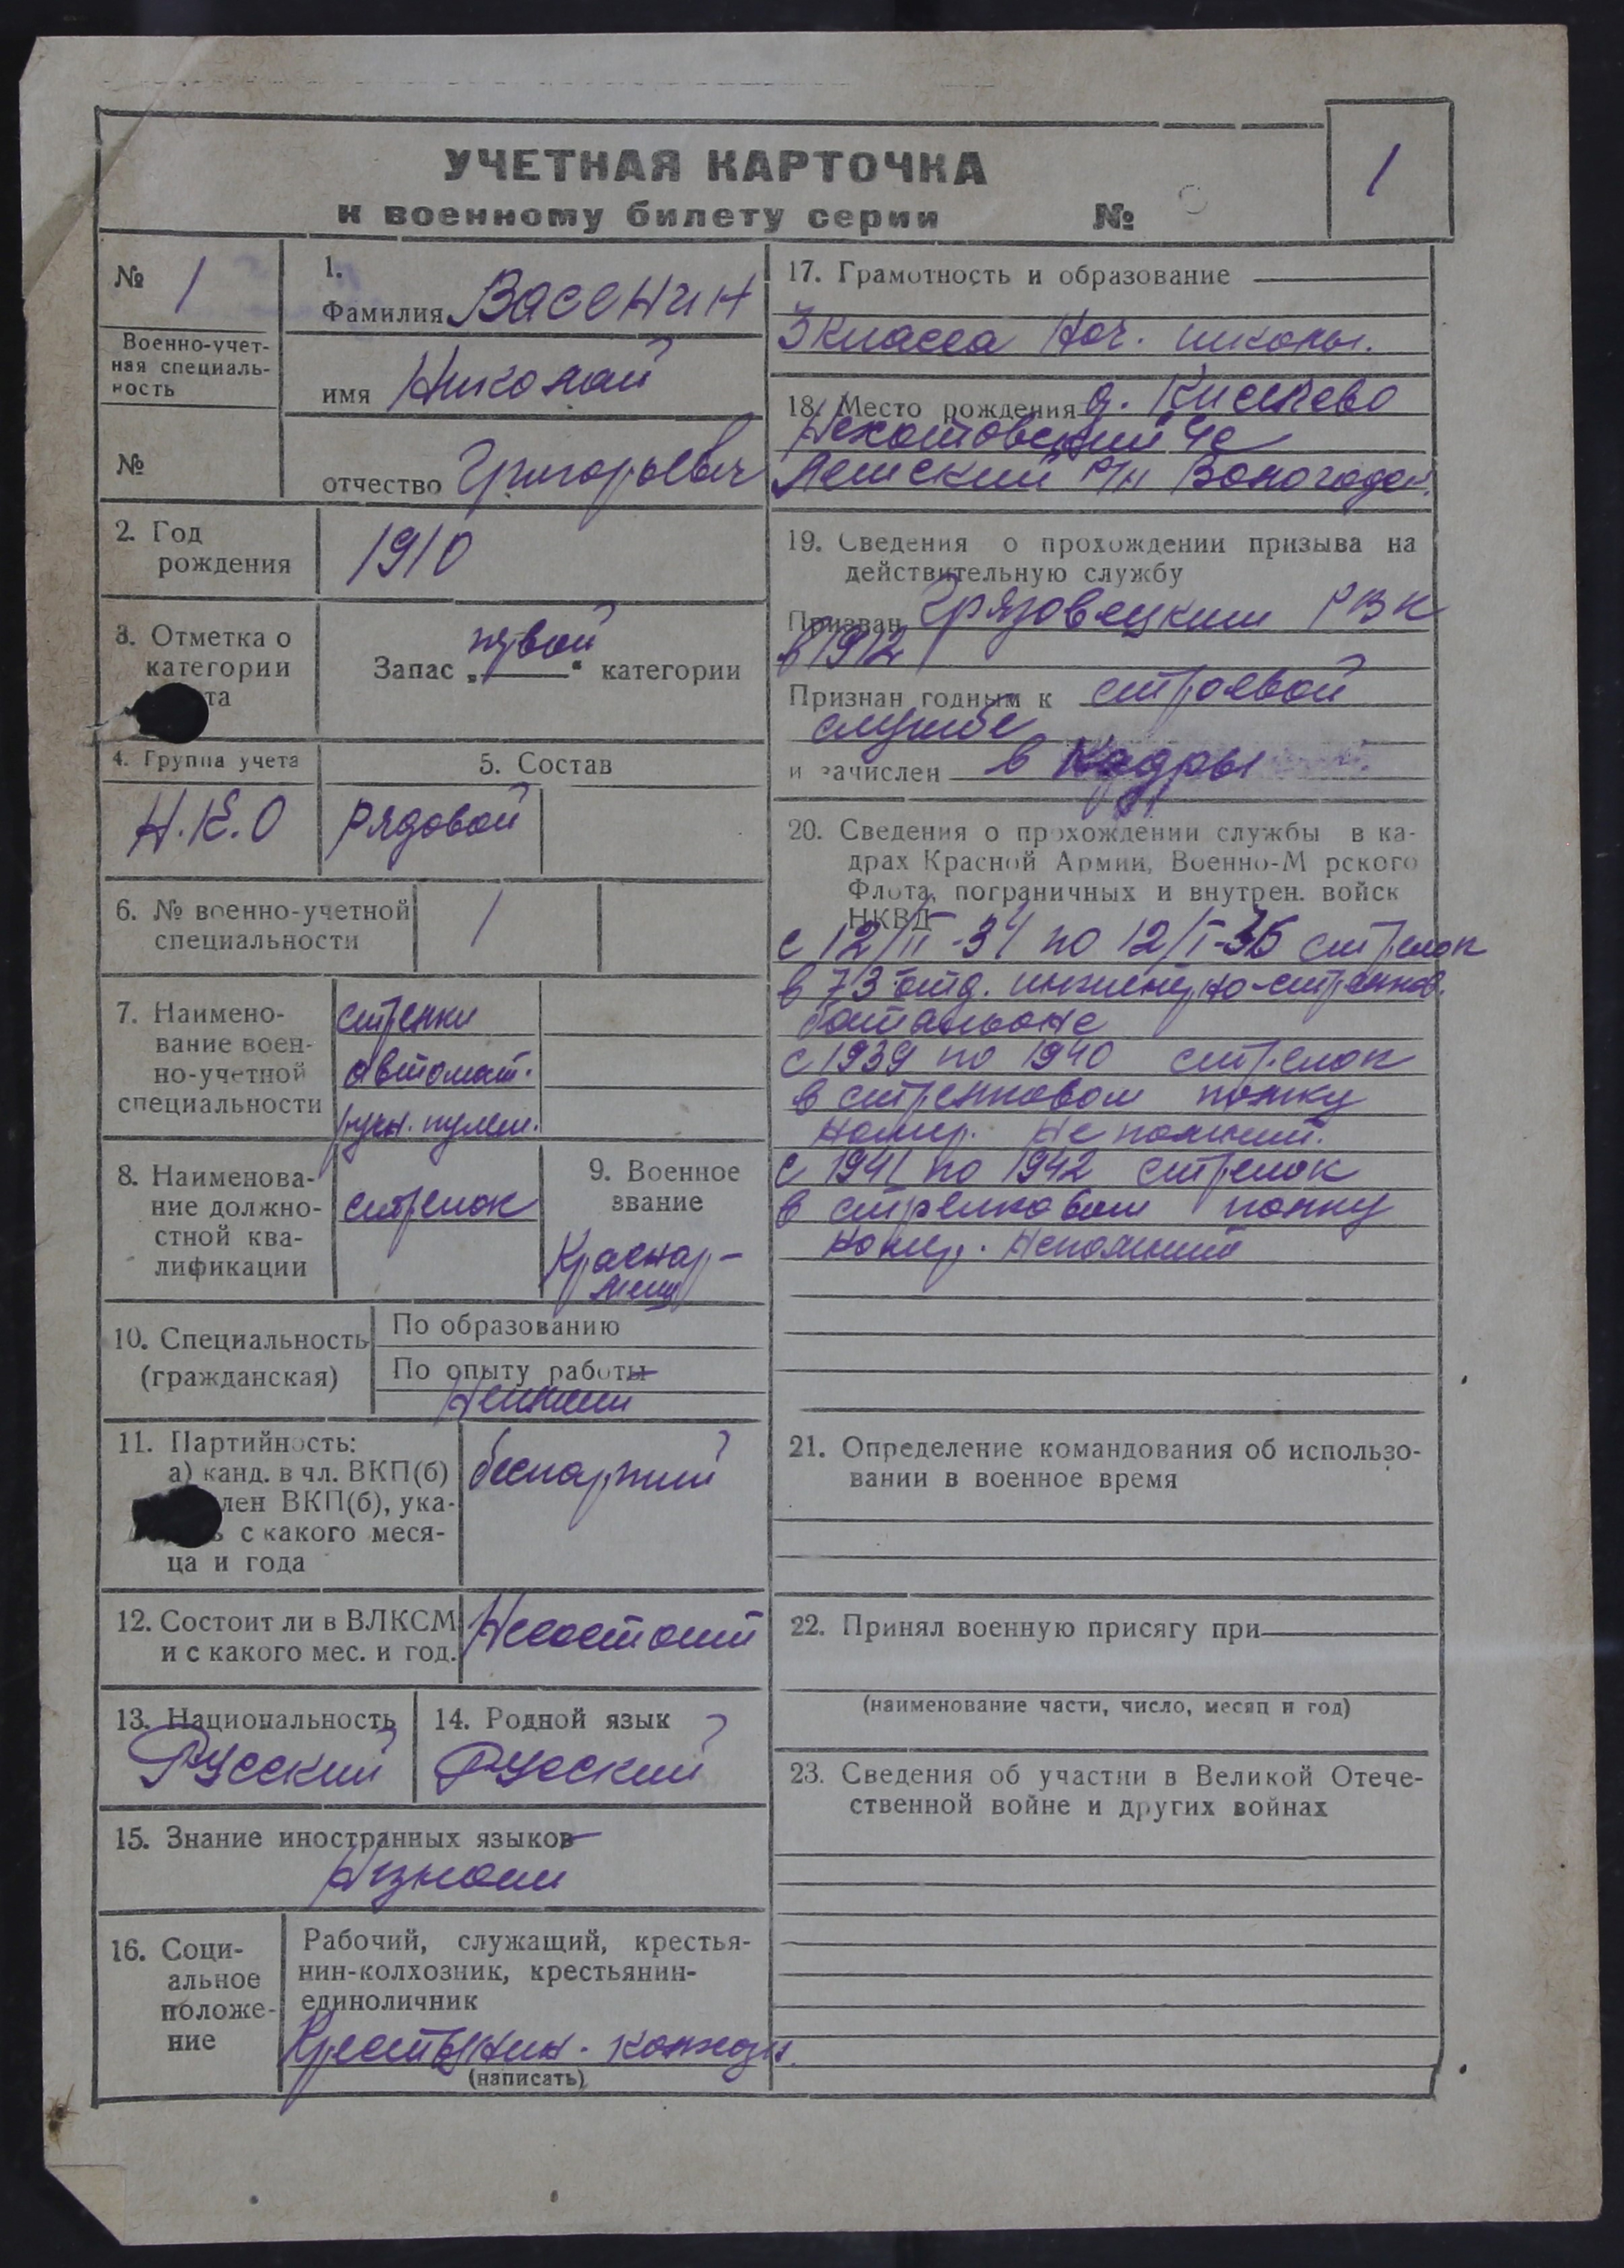 УЧЕТНАЯ КАРТОЧКА
к военному билету серии №
1
№ 1
Военно-учет-
ная специаль-
ность
№
1.
Фамилия Васенин
имя Николай
отчество Григорьевич
2. Год
рождения
1910
3. Отметка о
категории
та
Запас „первой“ категории
4. Группа учета
Н.К.О
5. Состав
рядовой
6. № военно-учетной
специальности
1
7. Наимено-
вание воен-
но-учетной
специальности
стрелки
автомат.
ручн. пулем.
8. Наименова-
ние должно-
стной ква-
лификации
стрелок
9. Военное
звание
Краснар-
меец
10. Специальность
(гражданская)
По образованию
По опыту работы
11. Партийность:
а) канд. в чл. ВКП(б)
лен ВКП(б), ука-
ь с какого меся-
ца и года
беспартий
12. Состоит ли в ВЛКСМ
и с какого мес. и год.
Несостоит
13. Национальность
Русский
14. Родной язык
Русский
15. Знание иностранных языков
16. Соци-
альное
положе-
ние
Рабочий, служащий, крестья-
нин-колхозник, крестьянин-
единоличник
Крестьянин. колхозн.
(написать)
17. Грамотность и образование
3 класса нач. школы.
18. Место рождения д. Киселево
с/с
р/н Вологодск.
19. Сведения о прохождении призыва на
действительную службу
Призван Грязовецким РВК
в 1912
Признан годным к строевой
службе
и зачислен в Кадры
20. Сведения о прохождении службы в ка-
драх Красной Армии, Военно-М рского
Флота, пограничных и внутрен. войск
НКВД
с 12/II-34 по 12/I-36 стрелок
в 73 отд. инженерно-стрелков.
батальоне
с 1939 по 1940 стрелок
в стрелковом полку
номер. Не помнит.
с 1941 по 1942 стрелок
в стрелковом полку
номер. Непомнит
21. Определение командования об использо-
вании в военное время
22. Принял военную присягу при
(наименование части, число, месяц и год)
23. Сведения об участии в Великой Отече-
ственной войне и других войнах